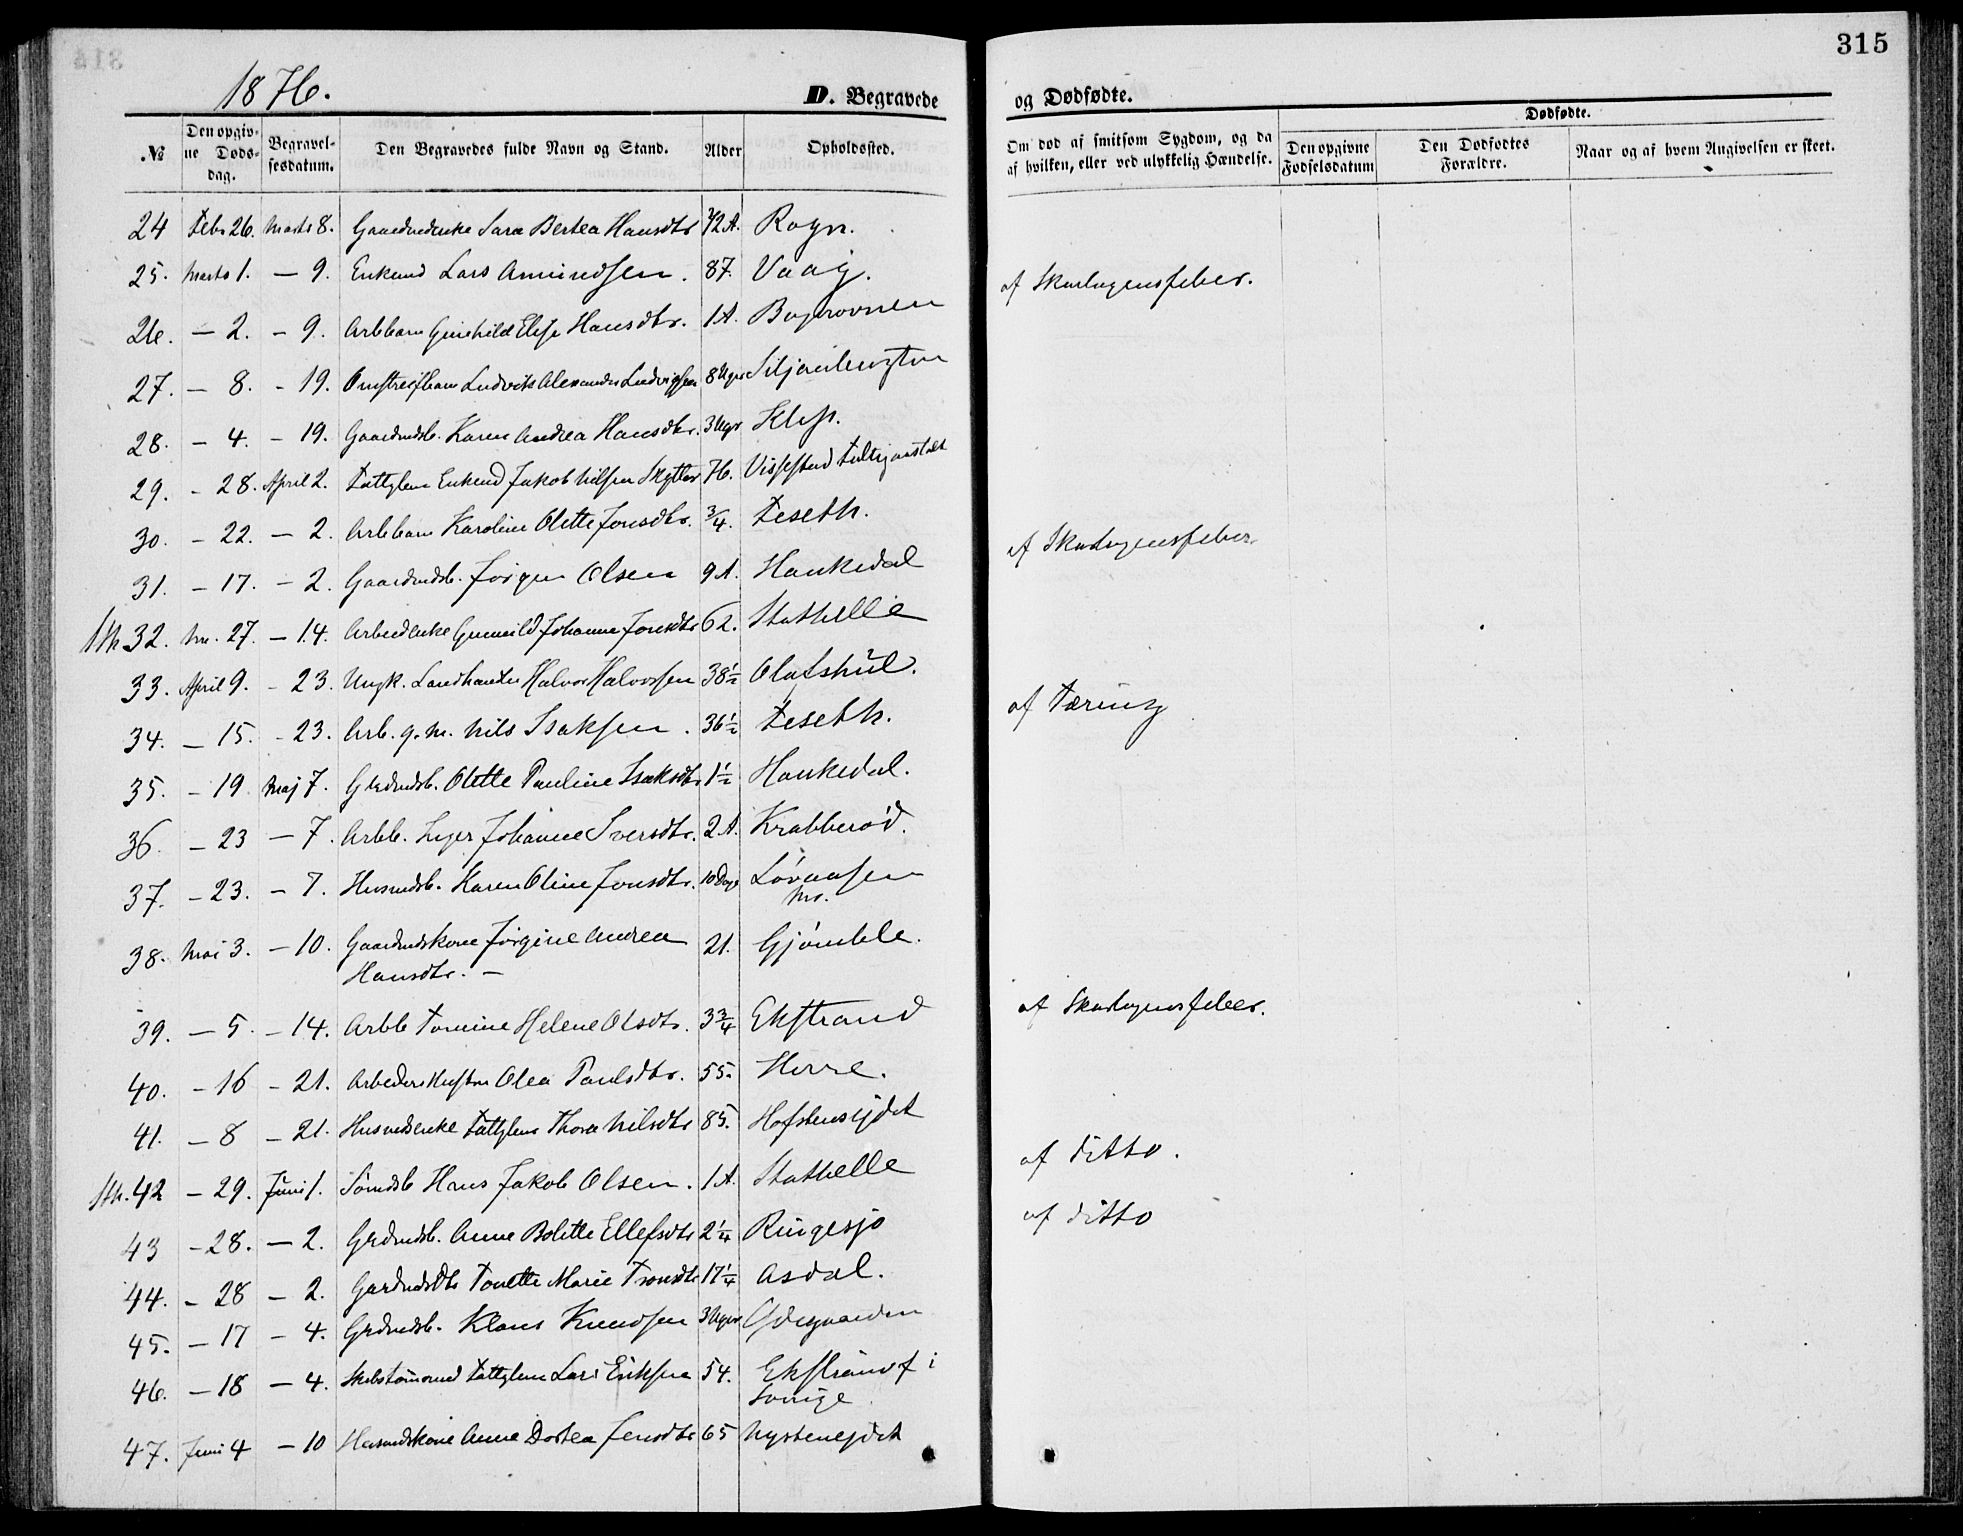 315
1876.
D. Begravede og Dødfødte.
№ Den opgivne Dødsdag. Begravelsesdatum. Den Begravedes fulde Navn og Stand. Alder Opholdssted. Om død af smitsom Sygdom, og da af hvilken, eller ved ulykkelig Hændelse. Dødfødte. Den opgivne Fødselsdatum Den Dødfødtes Forældre. Naar og af hvem Angivelsen er skeet.
24 Febr 26. Marts 8. Gaardmdenke Sara Bertea Hansdtr 72 A. Rogn.
25. Marts 1. — 9. Enkemd Lars Amundsen. 87. Vaag.
af Skarlagensfeber.
26. — 2. — 9. Arbbarn Gunhild Elise Hansdtr. 1 A.
27. — 8. — 19. Ludvik Alexander Ludvigsen 8 Uger
28. — 4. — 19. Gaardmdsb. Karen Andrea Hansdtr. 3 Uger Klep.
29. — 28. April 2. Fattiglem Enkemd Jakob Nilsen 76.
30. — 22. — 2. Arbbarn Karoline Olette Jonsdtr. 3/4. Feseth.
af Skarlagensfeber
31. — 17. — 2. Gaardmdsb. Jørgen Olsen 9 A. Haukedal
Sth 32. M. 27. — 14. Arbeidenke Gunnild Johanne Jonsdtr 62. Stathelle
33. April 9. — 23. Ungk. Landhandler Halvor Halvorsen 38½ Olafshül.
af Tæring
34. — 15. — 23. Arb. g. m. Nils Isaksen. 36½ Feseth.
35. — 19. Maj 7. Grdmdsb. Olette Pauline Isaksdtr 1½ Haukedal.
36. — 23 — 7. Arbb. Inger Johanne Iversdtr. 2 A. Krabberød.
37. — 23. — 7. Husmdsb. Karen Oline Jonsdtr. 10 Dage Løvaasen
38. Mai 3. — 10. Gaardmdskone Jørgine Andrea 21. Gjømle.
Hansdtr. —
39. — 5. — 14. Arbb Tomine Helene Olsdtr. 3¾ Ekstrand
af Skarlagensfeber.
40. — 16 — 21. Arbeders Hustru Olea Paulsdtr. 55. Herre.
41. — 8 — 21. Husmdsenke Fattiglem Thora Nilsdtr 85. Hofstenseidet
Sth. 42 — 29. Juni 1. Sømdsb Hans Jakob Olsen. 1 A. Stathelle
af ditto.
43 — 28. — 2. Grdmdsb. Anne Bolette Ellefsdtr 2¼ Ringesjø
af ditto
44. — 28 — 2. Gardmdsdtr Tonette Marie Tronsdtr 17¼ Asdal.
45. — 17 — 4. Grdmdsb. Klaus Knudsen 3 Uger Ødegaarden
46. — 18 — 4. Skibstømmermd Fattiglem Lars Eriksen 54. Ekstrand f i
Sverige
47. Juni 4 — 10 Husmdskone Anne Dortea Jensdtr 65 Nysteneidet